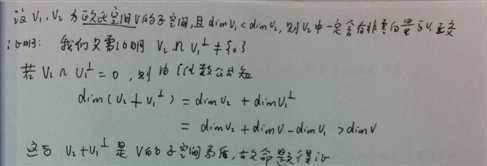 设 V₁、V₂ 为欧氏空间 V 的子空间,且 dim V₁ < dim V₂, 则 V₂ 中一定含有非零向量与 V₁ 正交
证明: 我们只需证明 V₂ ∩ V₁^⊥ ≠ {0}
若 V₂ ∩ V₁^⊥ = 0, 则由维数公式知
dim(V₂ + V₁^⊥) = dim V₂ + dim V₁^⊥
= dim V₂ + dim V - dim V₁ > dim V
这与 V₂ + V₁^⊥ 是 V 的子空间矛盾, 故命题得证